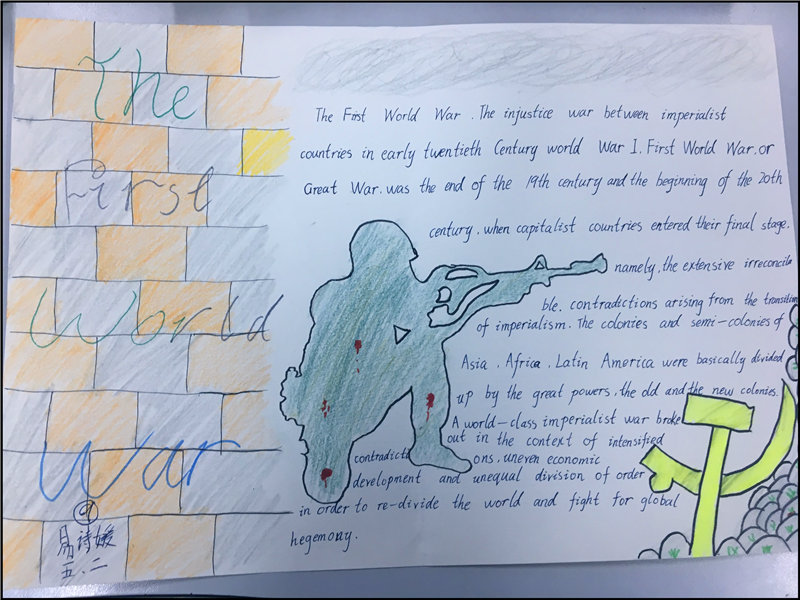 The
First
World
War
⑨
易诗媛
五.二
The First World War. The injustice war between imperialist
countries in early twentieth Century world War I. First World War. or
Great War. was the end of the 19th century and the beginning of the 20th
century. when capitalist countries entered their final stage.
namely, the extensive irreconcila
ble. contradictions arising from the transition
of imperialism. The colonies and semi-colonies of
Asia. Africa. Latin America were basically divided
up by the great powers, the old and the new colonies.
A world-class imperialist war broke
out in the context of intensified
contradicti ons, uneven economic
development and unequal division of order
in order to re-divide the world and fight for global
hegemony.